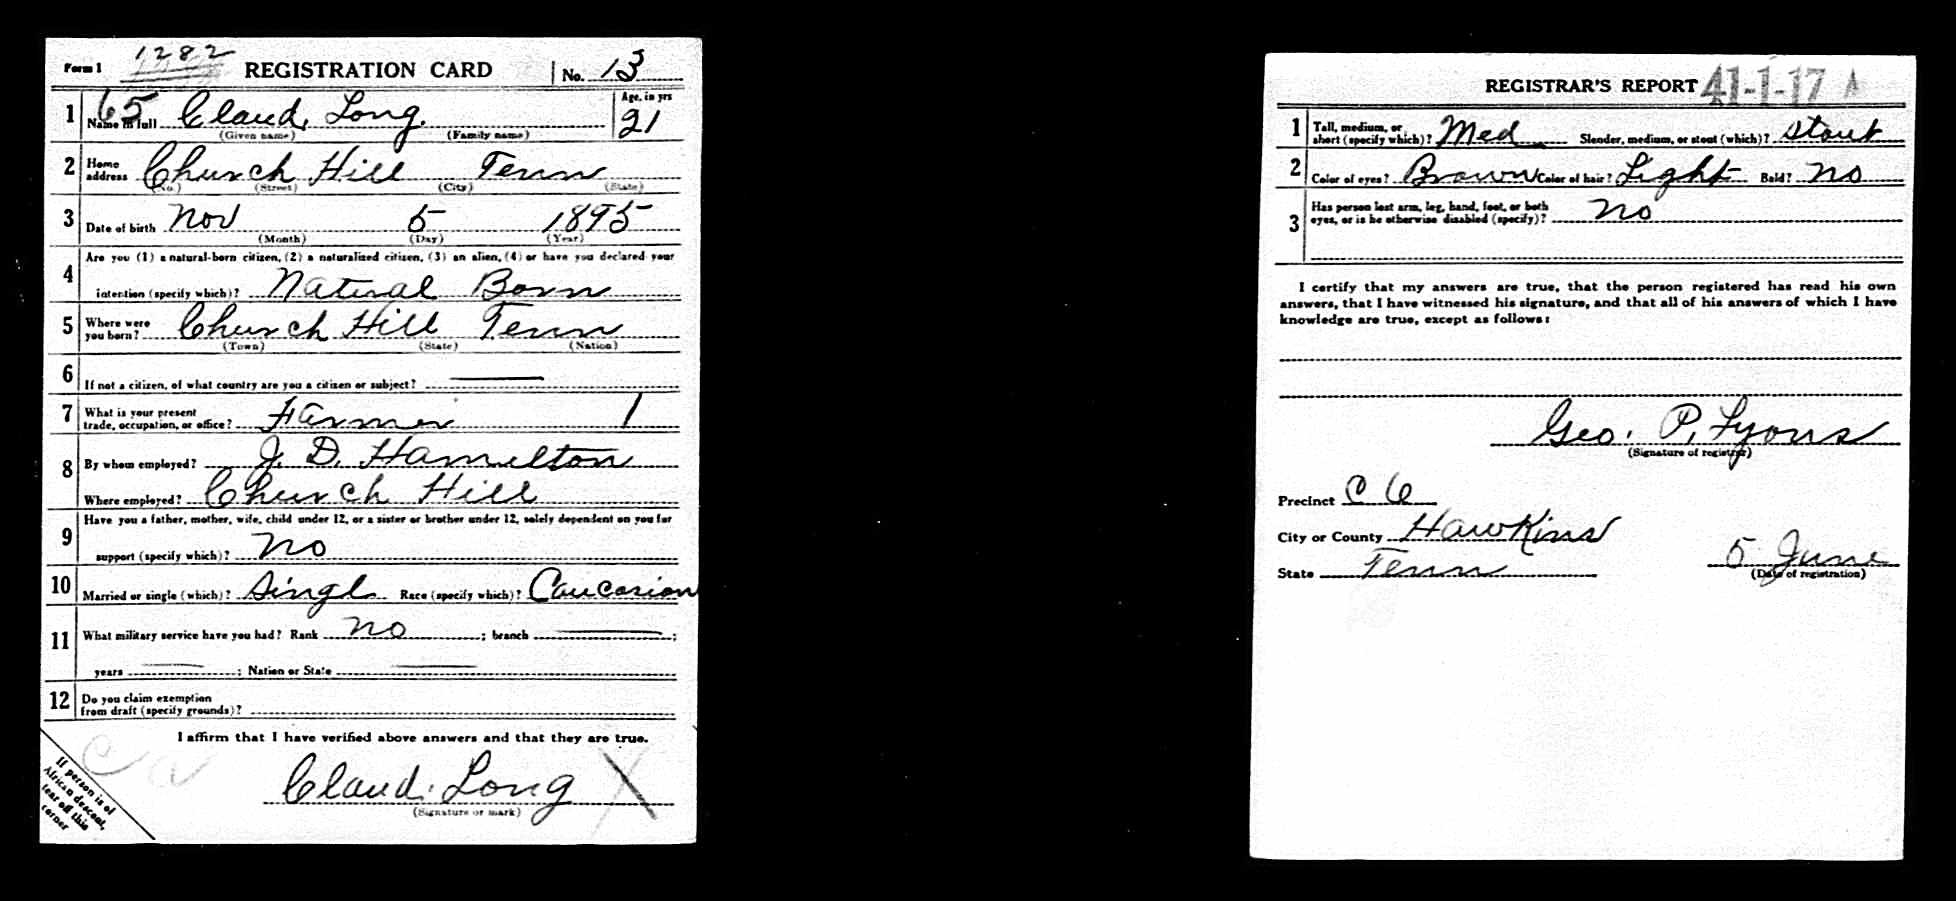 Form 1 1282 REGISTRATION CARD No. 13
1 65 Name in full Claud. Long. Age, in yrs 21
(Given name) (Family name)
2 Home address Church Hill Tenn
(No.) (Street) (City) (State)
3 Date of birth Nov 5 1895
(Month) (Day) (Year)
4 Are you (1) a natural-born citizen, (2) a naturalized citizen, (3) an alien, (4) or have you declared your
intention (specify which)? Natural Born
5 Where were you born? Church Hill Tenn
(Town) (State) (Nation)
6 If not a citizen, of what country are you a citizen or subject?
7 What is your present trade, occupation, or office? Farmer 1
8 By whom employed? J. D. Hamilton
Where employed? Church Hill
9 Have you a father, mother, wife, child under 12, or a sister or brother under 12, solely dependent on you for
support (specify which)? No
10 Married or single (which)? Singl Race (specify which)? Caucasian
11 What military service have you had? Rank No ; branch ;
years ; Nation or State
12 Do you claim exemption
from draft (specify grounds)?
I affirm that I have verified above answers and that they are true.
Claud. Long X
(Signature or mark)
If person is of
African descent,
tear off this
corner
REGISTRAR'S REPORT 41-1-17 A
1 Tall, medium, or short (specify which)? Med Slender, medium, or stout (which)? Stout
2 Color of eyes? Brown Color of hair? Light Bald? No
3 Has person lost arm, leg, hand, foot, or both
eyes, or is he otherwise disabled (specify)? No
I certify that my answers are true, that the person registered has read his own
answers, that I have witnessed his signature, and that all of his answers of which I have
knowledge are true, except as follows:
Geo. P. Lyons
(Signature of registrar)
Precinct C 6
City or County Hawkins
State Tenn 5 June
(Date of registration)